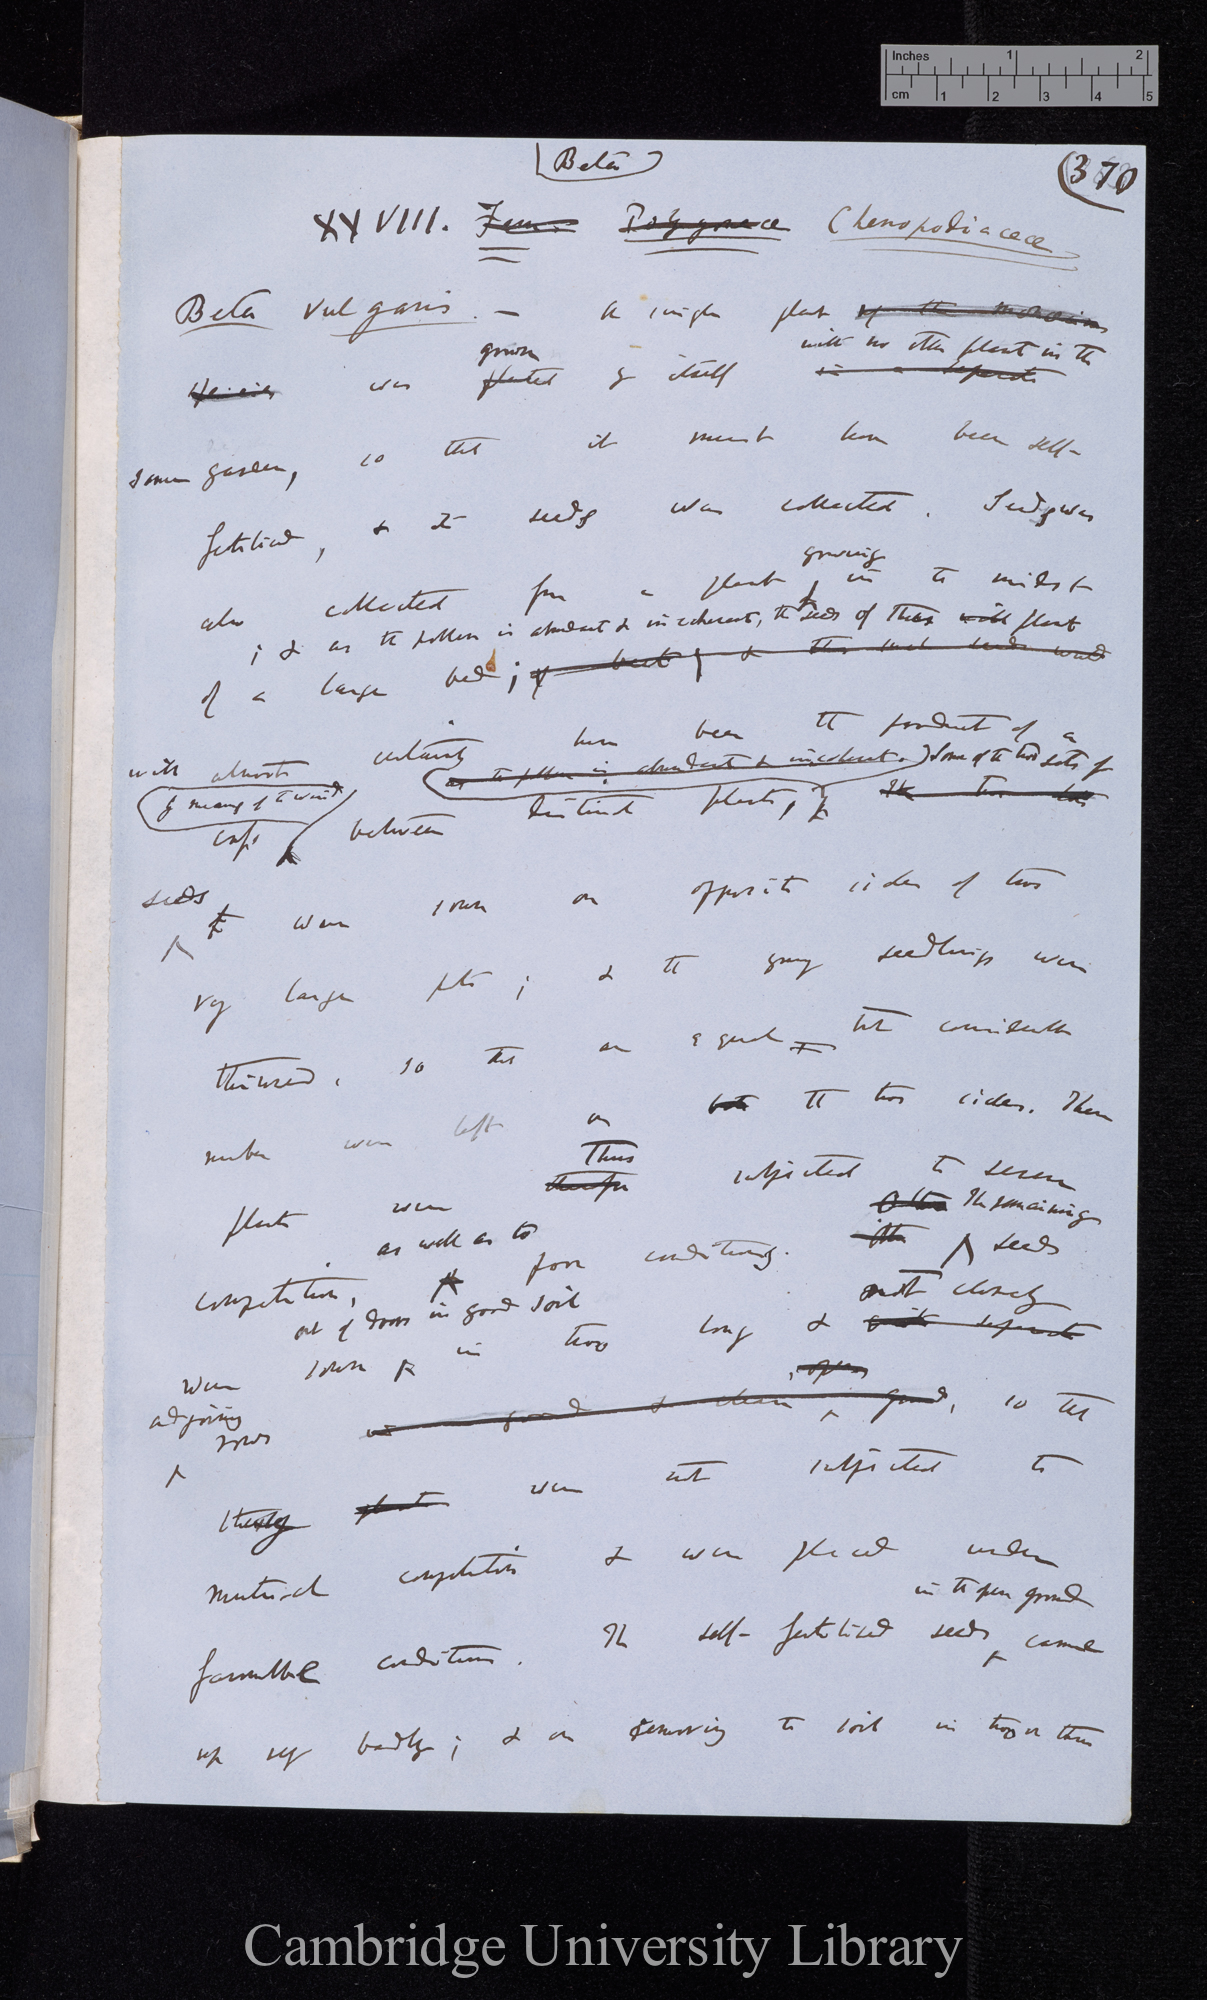 Inches 1 2
cm 1 2 3 4 5
Beta
(370
XXVIII. Fam. Polygonaceae Chenopodiaceae
Beta vulgaris. — A single plant of the
with no other plant in the
grown
was planted by itself in a separate
same garden, so that it must have been self-
fertilised, & the seeds was collected. Seeds was
growing
also collected from a plant in the midst
; & as the pollen is abundant & incoherent, the seeds of these will plant
of a large bed; of beet; & this seeds would
will almost certainly have been the product of a
as the pollen is abundant & incoherent. Some of the two sets of
by means of the wind
cross between distinct plants, The two lots
seeds were sown on opposite sides of two
very large pots; & the young seedlings were
thinned, so that an equal but considerable
number were left on both the two sides. These
Thus
plants were therefore subjected to severe
Others The remaining
as well as to
competition, poor conditions. seeds
out of doors in good soil
not closely
were sown in two long & quite separate
open
adjoining
rows in good & clean ground, so that
they plants were not subjected to
mutual competition & were placed under
in the open ground
favourable conditions. The self-fertilised seeds came
up very badly; & on removing the soil in two or three
Cambridge University Library